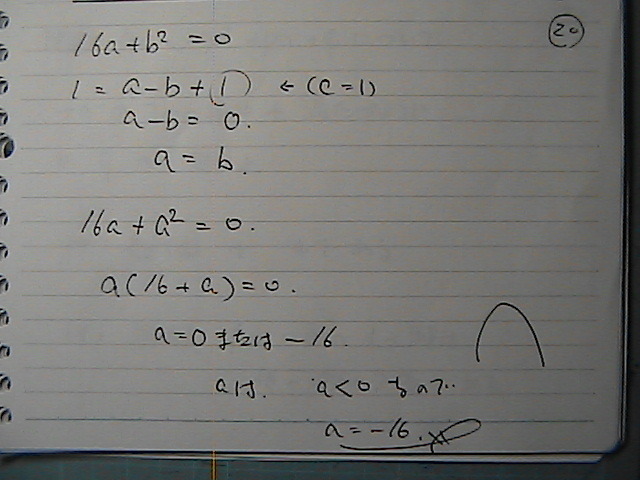 20
16a+b² = 0
1 = a-b+(1) ← (c=1)
a-b = 0.
a = b.
16a + a² = 0.
a(16+a)=0.
a=0または-16.
aは. a<0なので
a=-16.